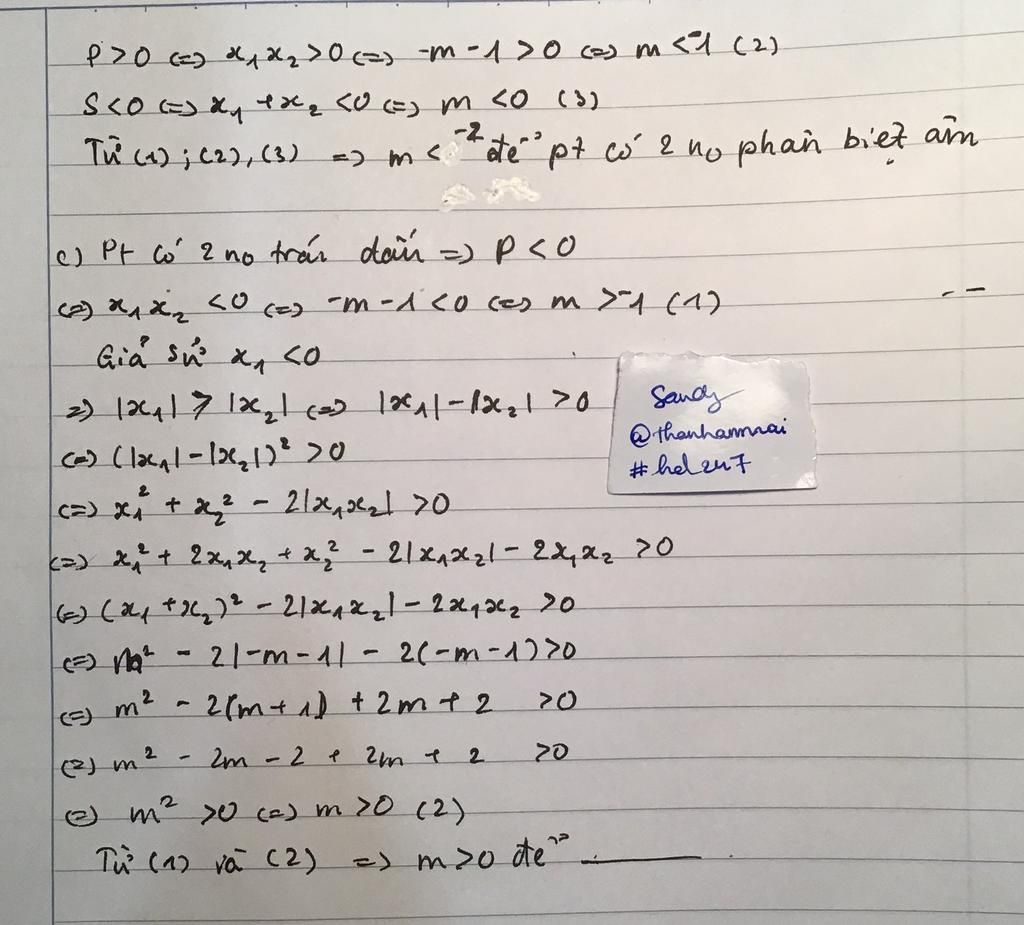 P>0 <=> x₁x₂>0 <=> -m-1>0 <=> m<-1 (2)
S<0 <=> x₁+x₂<0 <=> m<0 (3)
Từ (1); (2), (3) => m < -2 để pt có 2 no phân biệt âm
c) Pt có 2 no trái dấu => P<0
<=> x₁x₂<0 <=> -m-1<0 <=> m>-1 (1)
Giả sử x₁<0
=> |x₁| > |x₂| <=> |x₁|-|x₂| >0
<=> (|x₁|-|x₂|)² >0
<=> x₁² + x₂² - 2|x₁x₂| >0
<=> x₁² + 2x₁x₂ + x₂² - 2|x₁x₂| - 2x₁x₂ >0
<=> (x₁+x₂)² - 2|x₁x₂| - 2x₁x₂ >0
<=> m² - 2|-m-1| - 2(-m-1)>0
<=> m² - 2(m+1) + 2m + 2 >0
<=> m² - 2m - 2 + 2m + 2 >0
<=> m² >0 <=> m>0 (2)
Từ (1) và (2) => m>0 để
Sandy
@thanhamnai
#hel247